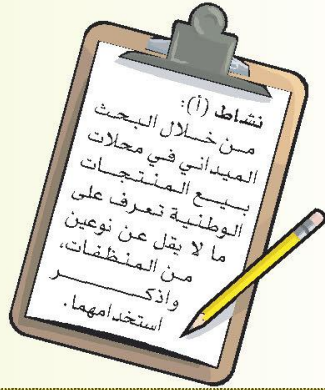 نشاط (أ):
من خلال البحث
الميداني في محلات
بيع المنتجات
الوطنية تعرف على
ما لا يقل عن نوعين
من المنظفات،
واذكر
استخدامهما.